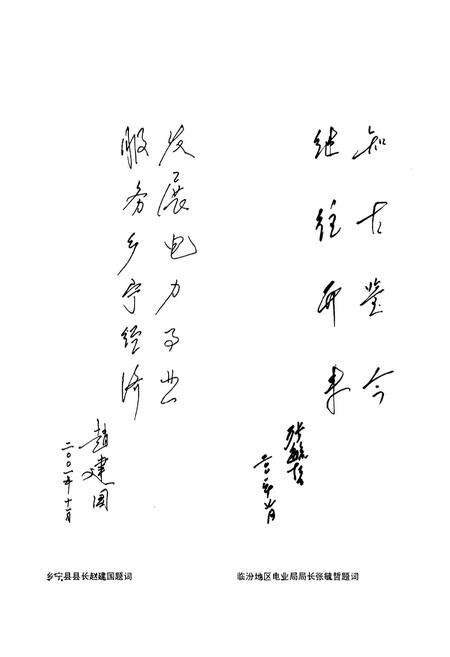 知古鉴今
继往开来
张毓哲
二〇〇一年十一月
发展电力事业
服务乡宁经济
赵建国
二〇〇一年十一月
乡宁县县长赵建国题词
临汾地区电业局局长张毓哲题词